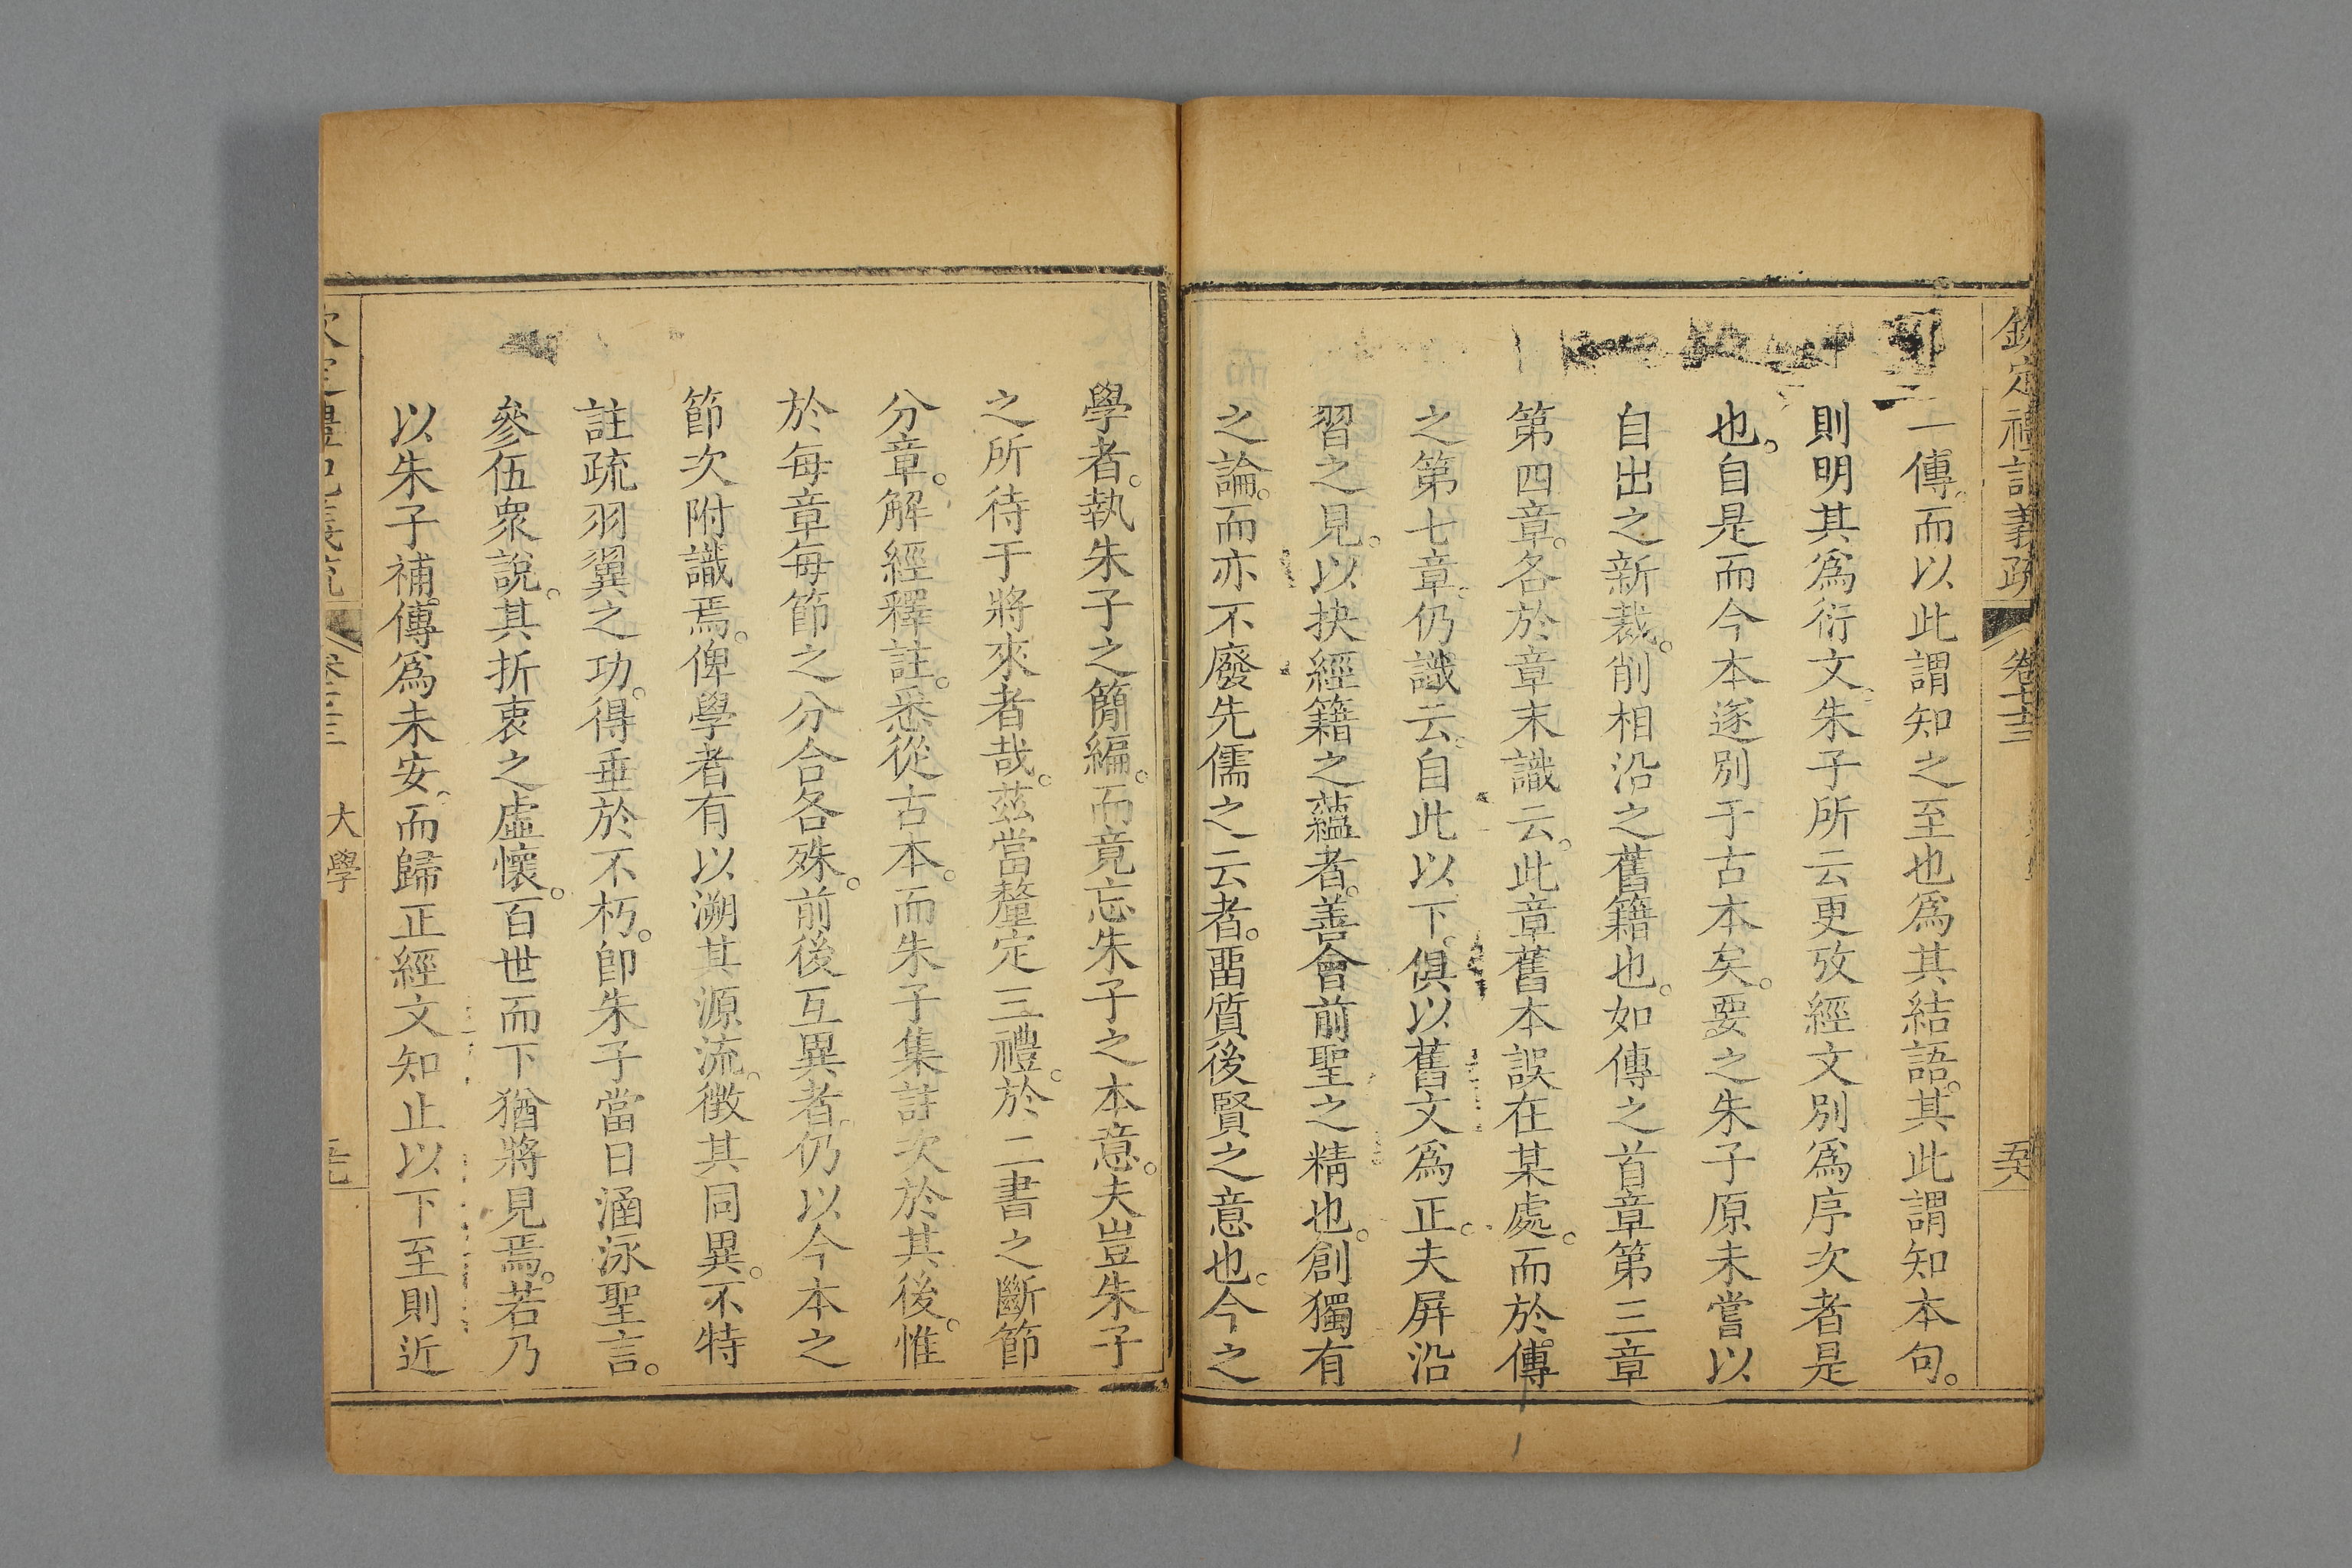 欽定禮記義疏 卷七十三
一傳。而以此謂知之至也爲其結語。其此謂知本句。
則明其爲衍文。朱子所云更攷經文別爲序次者是
也。自是而今本遂別于古本矣。要之朱子原未嘗以
自出之新裁。削相沿之舊籍也。如傳之首章第三章
第四章。各於章末識云。此章舊本誤在某處。而於傳
之第七章。仍識云。自此以下。俱以舊文爲正。夫屛沿
習之見。以抉經籍之蘊者。善會前聖之精也。創獨有
之論。而亦不廢先儒之云者。畱質後賢之意也。今之
學者。執朱子之簡編。而竟忘朱子之本意。夫豈朱子
之所待于將來者哉。茲當釐定三禮。於二書之斷節
分章。解經釋註。悉從古本。而朱子集註次於其後。惟
於每章每節之分合各殊。前後互異者。仍以今本之
節次附識焉。俾學者有以溯其源流。徵其同異。不特
註疏羽翼之功。得垂於不朽。卽朱子當日涵泳聖言。
參伍衆說。其折衷之虛懷。百世而下猶將見焉。若乃
以朱子補傳爲未安。而歸正經文知止以下至則近
大學